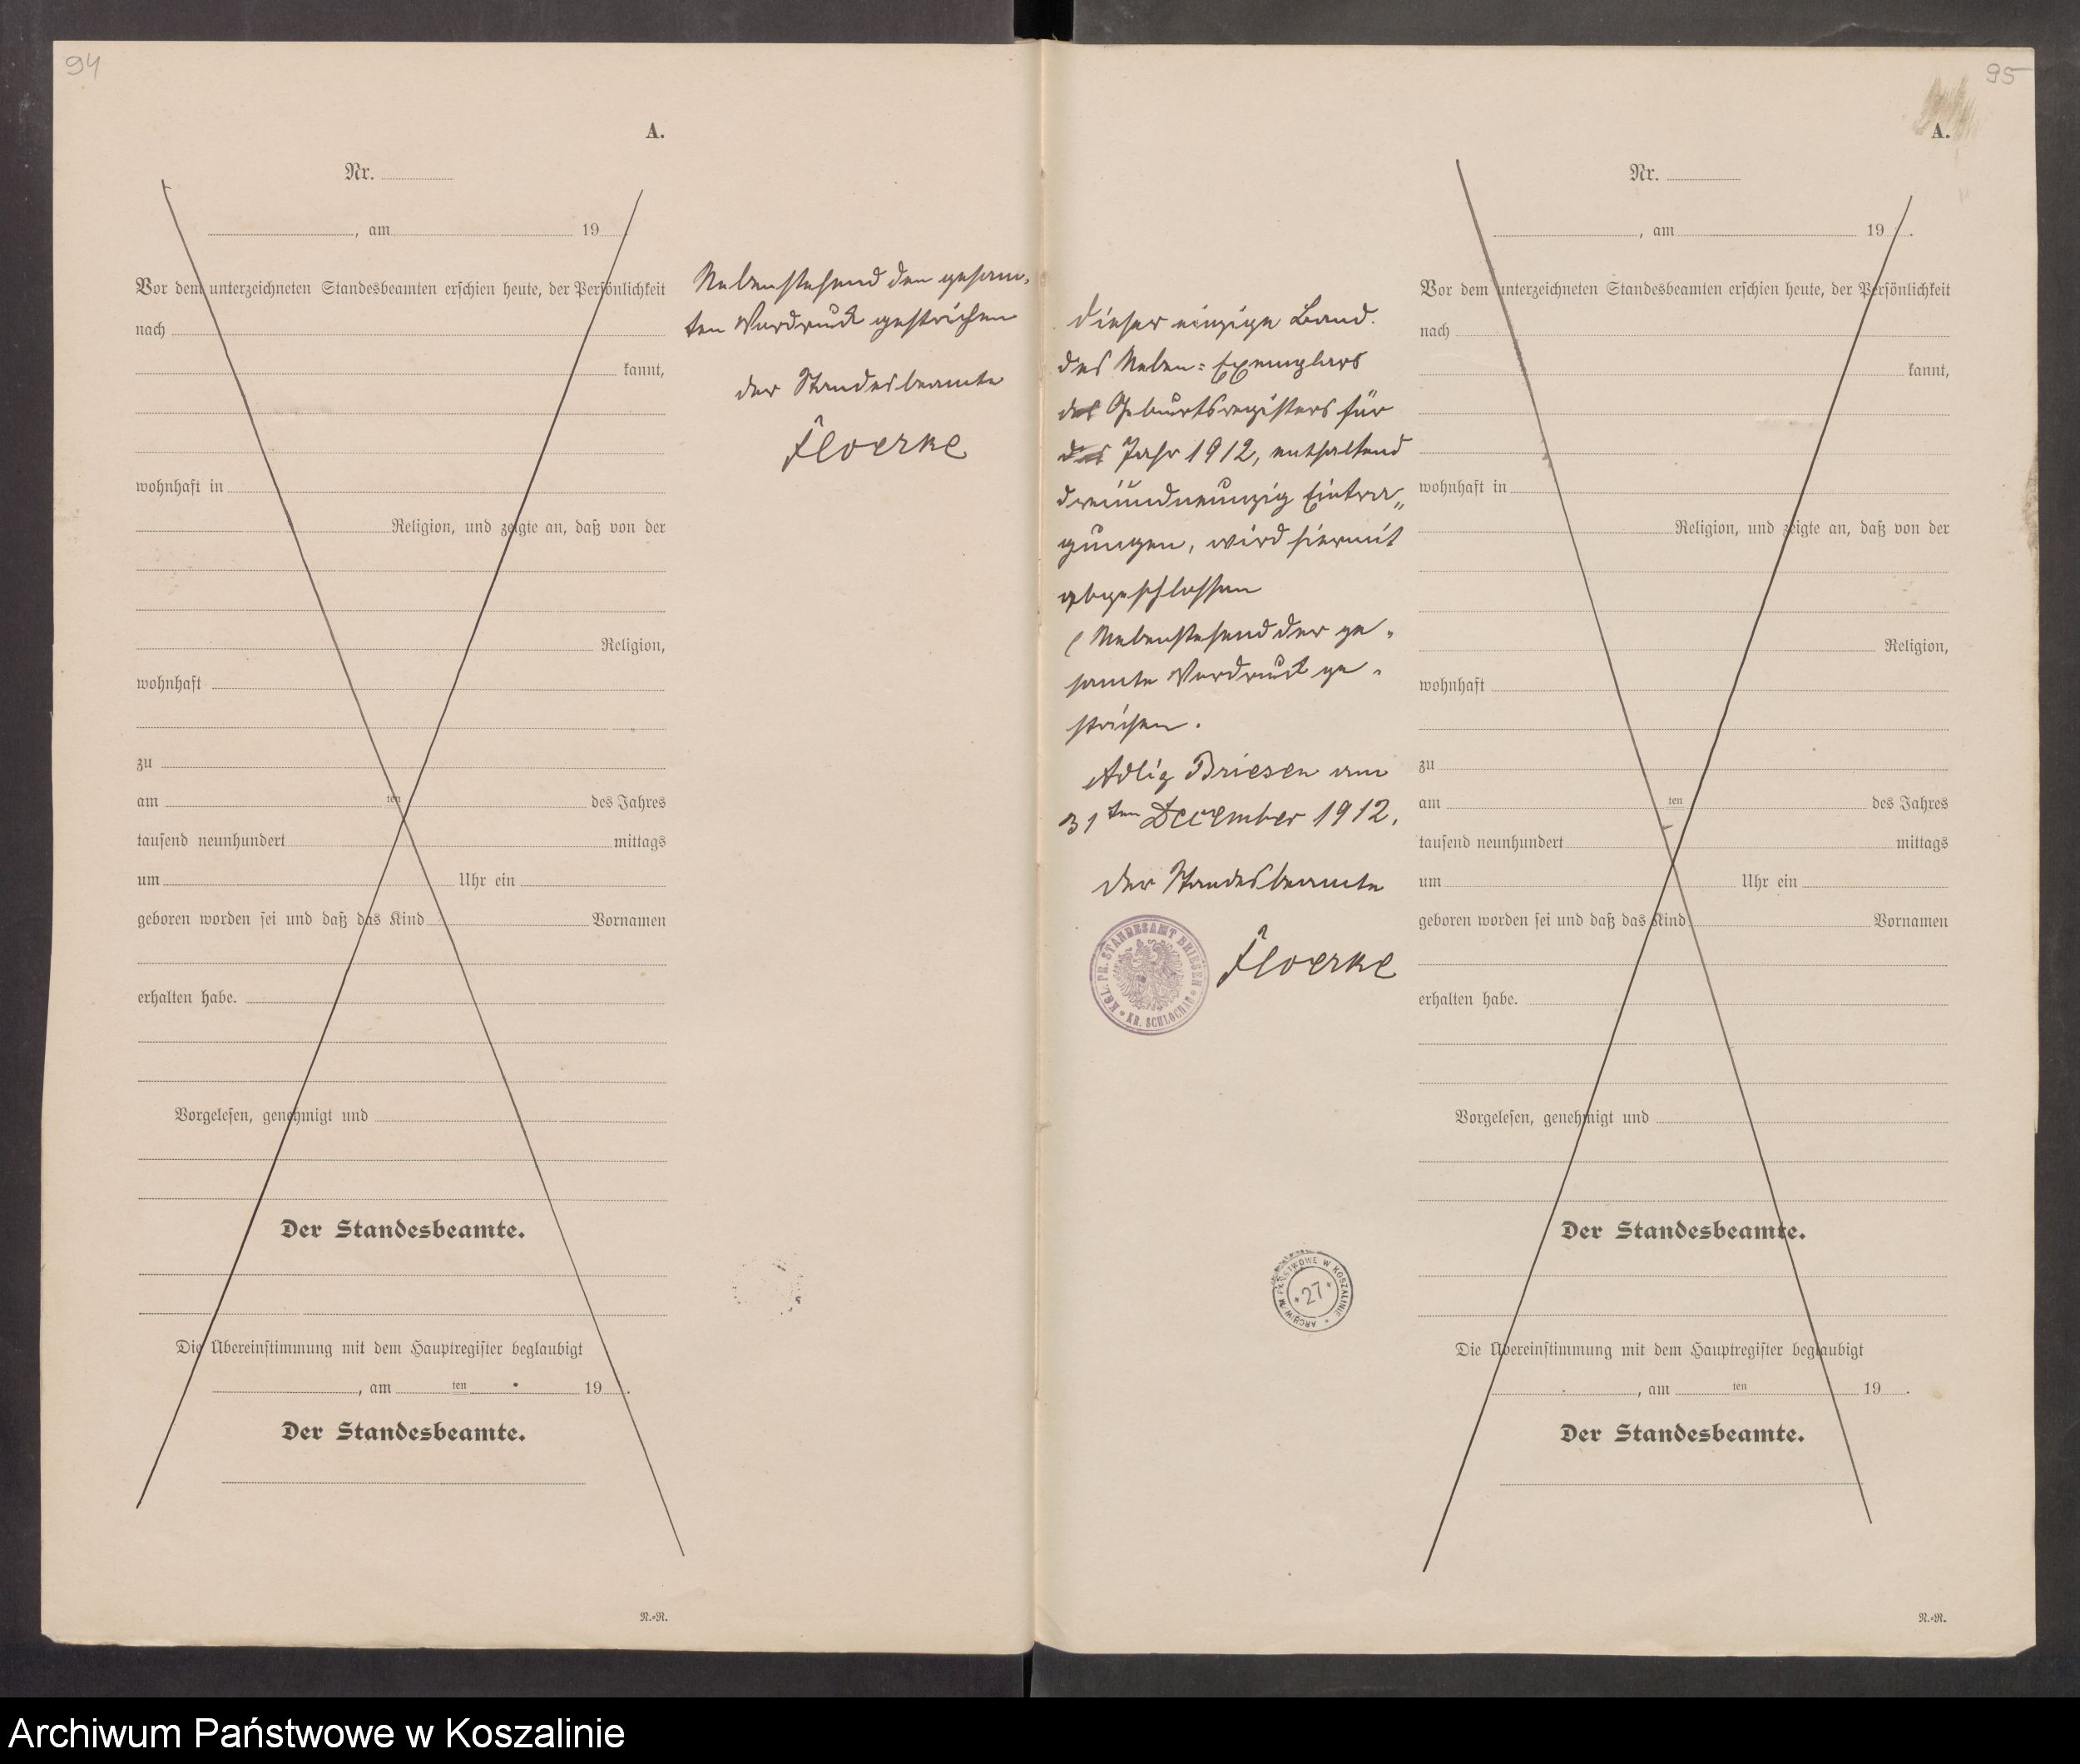 94
A.
Nr.
, am 19 .
Vor dem unterzeichneten Standesbeamten erschien heute, der Persönlichkeit
nach
kannt,
wohnhaft in
Religion, und zeigte an, daß von der
Religion,
wohnhaft
zu
am ten des Jahres
tausend neunhundert mittags
um Uhr ein
geboren worden sei und daß das Kind Vornamen
erhalten habe.
Vorgelesen, genehmigt und
Der Standesbeamte.
Die Übereinstimmung mit dem Hauptregister beglaubigt
, am ten 19 .
Der Standesbeamte.
N.=R.
Nebenstehend den gesam-
ten Vordruck gestrichen
der Standesbeamte
Floerke
95
Dieser einzige Band.
des Neben=Exemplars
des Geburtsregisters für
das Jahr 1912, enthaltend
dreiundneunzig Eintra„
gungen, wird hiermit
abgeschlossen
(Nebenstehend der ge-
samte Vordruck ge-
strichen.
Adlig Briesen am
31ten December 1912.
Der Standesbeamte
Floerke
KGL. PR. STANDESAMT BRIESEN * KR. SCHLOCHAU *
ARCHIWUM PAŃSTWOWE W KOSZALINIE
* 27 *
A.
Nr.
, am 19 .
Vor dem unterzeichneten Standesbeamten erschien heute, der Persönlichkeit
nach
kannt,
wohnhaft in
Religion, und zeigte an, daß von der
Religion,
wohnhaft
zu
am ten des Jahres
tausend neunhundert mittags
um Uhr ein
geboren worden sei und daß das Kind Vornamen
erhalten habe.
Vorgelesen, genehmigt und
Der Standesbeamte.
Die Übereinstimmung mit dem Hauptregister beglaubigt
, am ten 19 .
Der Standesbeamte.
N.=R.
Archiwum Państwowe w Koszalinie